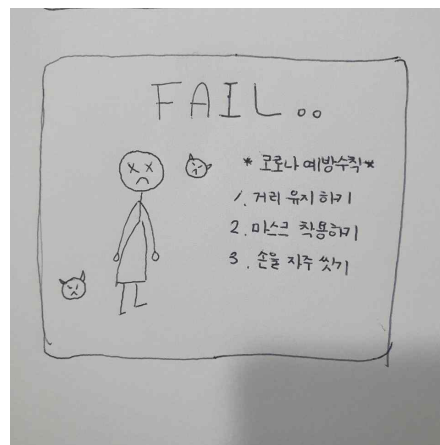 FAIL..
* 코로나 예방수칙 *
1. 거리 유지 하기
2. 마스크 착용하기
3. 손을 자주 씻기